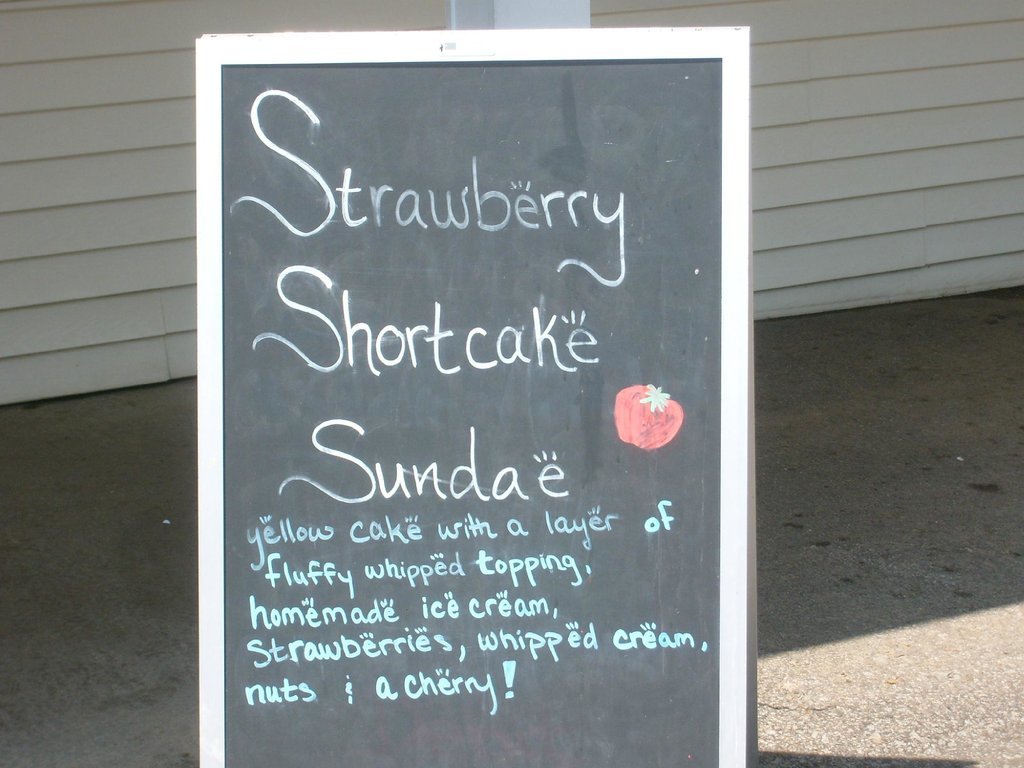 Strawberry
Shortcake
Sundae
yellow cake with a layer of
fluffy whipped topping,
homemade ice cream,
strawberries, whipped cream,
nuts & a cherry!